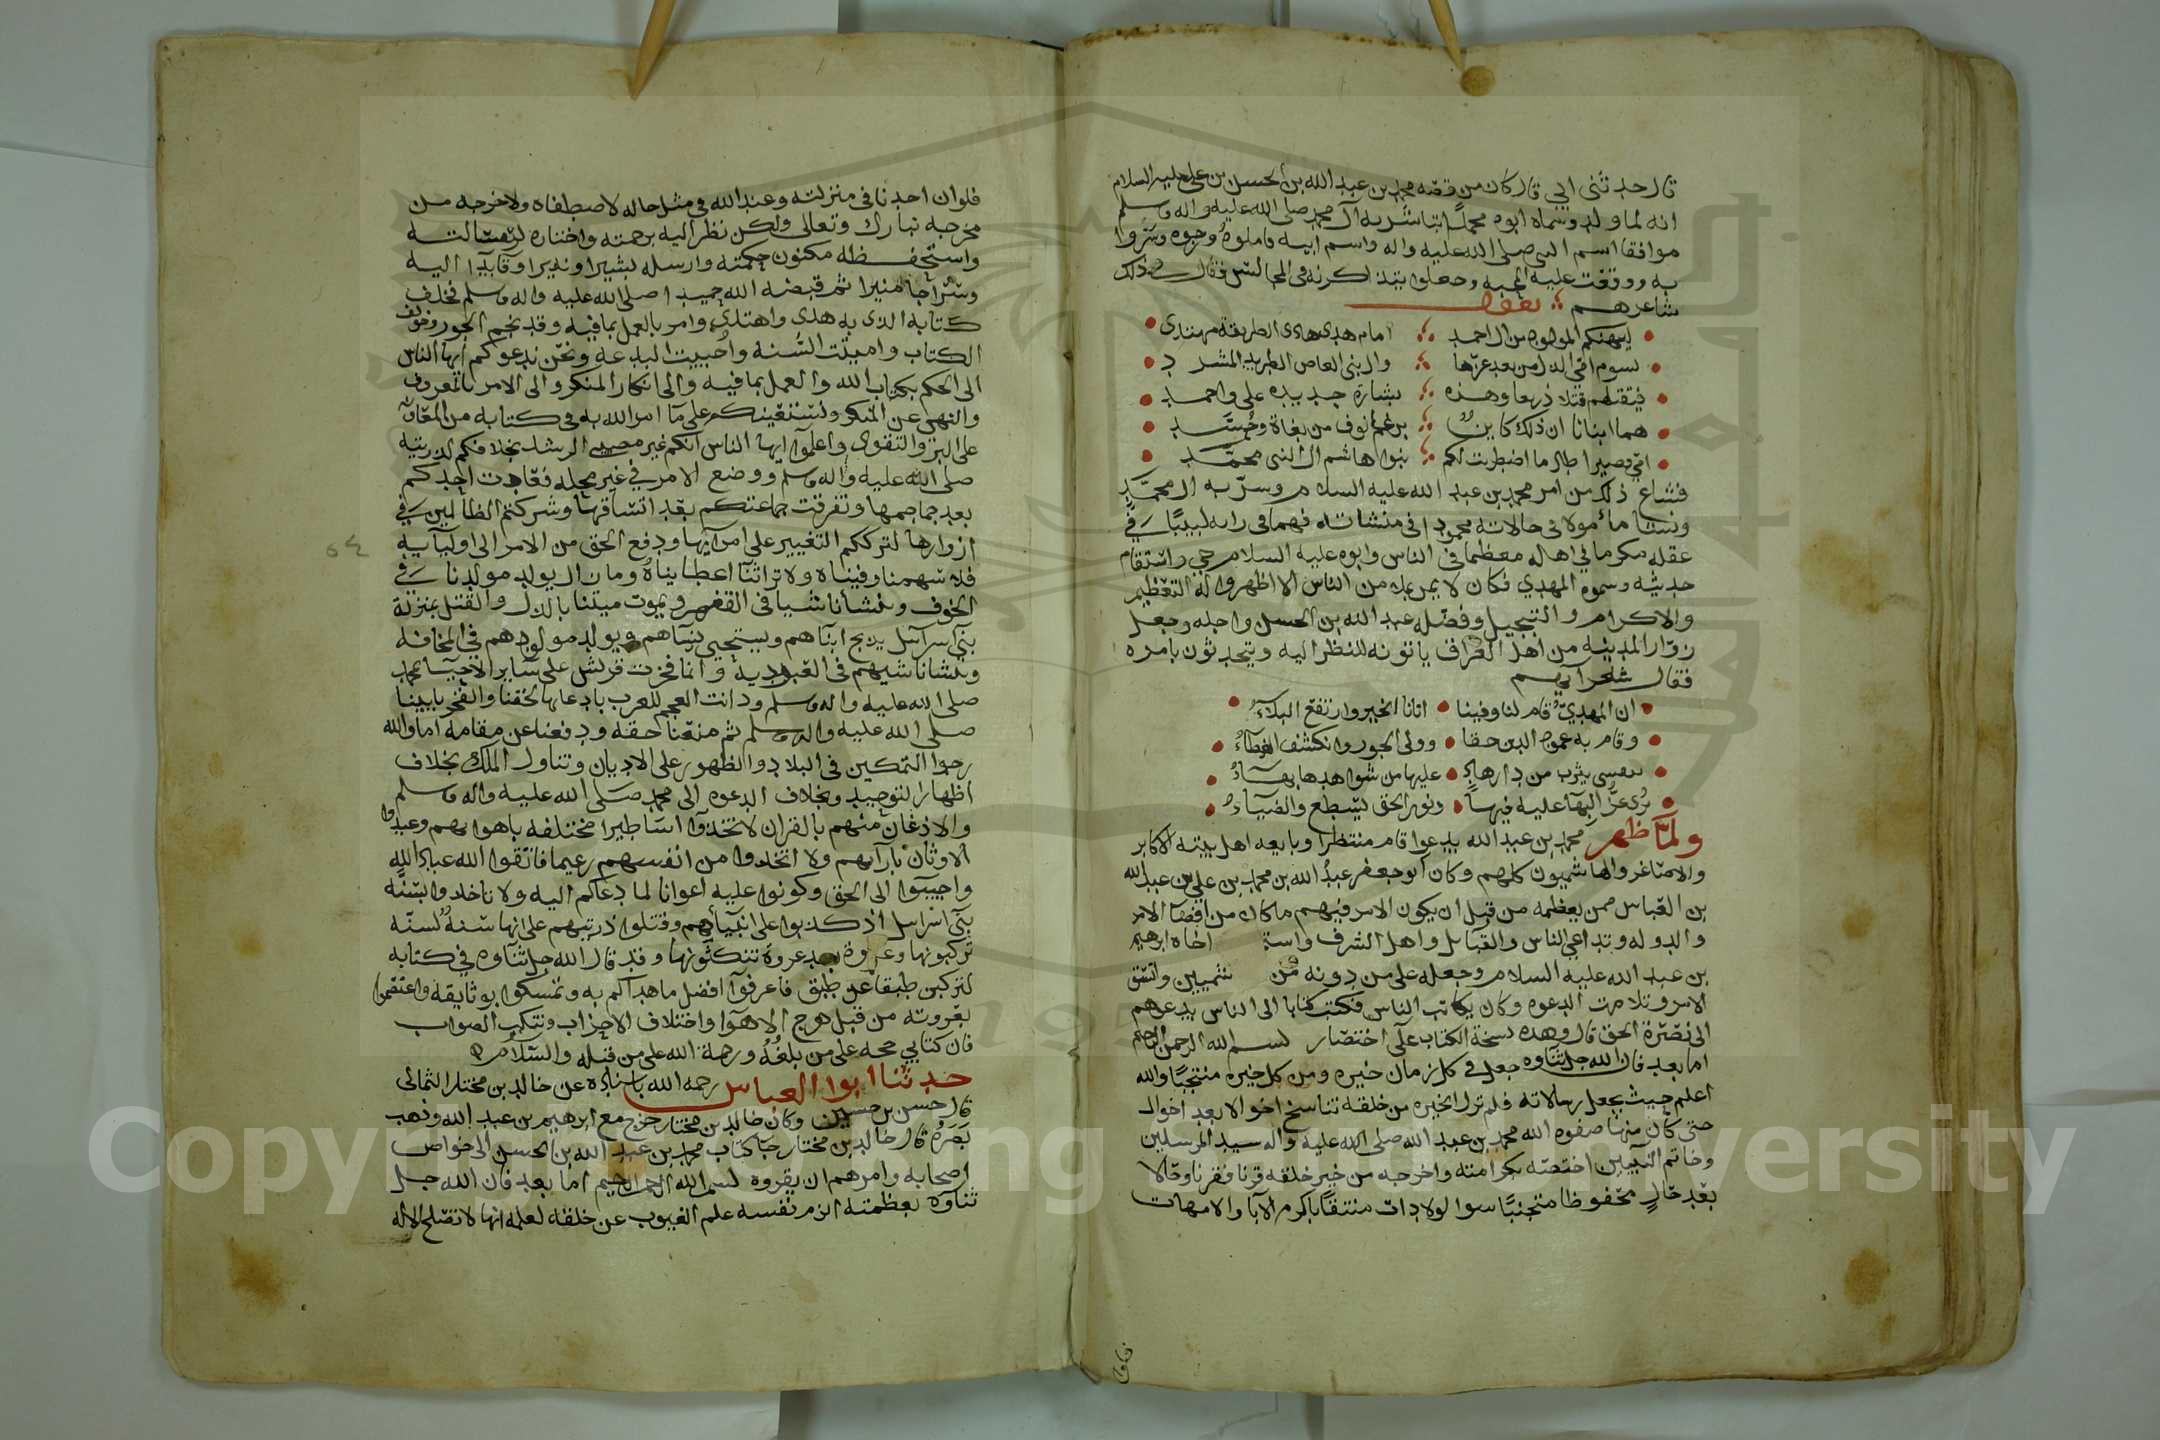 قال حدثني ابي قال كان من قصة محمد بن عبد الله بن الحسن بن علي عليه السلام
انه لما ولد وسماه ابوه محمدا تباشر به آل محمد صلى الله عليه واله وسلم
موافقا اسم النبي صلى الله عليه واله واسم ابيه فاملوه ورجوه وسروا
به ووقعت عليه المحبه وجعلوا يتذاكرنه في المجالس فقال في ذلك
شاعرهم
ليهنكم المولود من ال احمد امام هدى هادى الطريقة مهتدي
يسوم امي الذل من بعد عزها وال بني العاص الطريد المشرد
فيقتلهم قتلا ذريعا وهذه بشارة جديه علي واحمد
هما انبانا ان ذلك كاين برغم انوف من بغاة وحسد
امي صبرا طال ما اضطربت لكم بنوا هاشم ال النبي محمد
فشاع ذلك من امر محمد بن عبد الله عليه السلام وسر به ال محمد
ونشا مأمولا في حالاته محمودا في منشاته فهما في رايه لبيبا في
عقله مكرما في اهله معظما في الناس وابوه عليه السلام حي واستقام
حديثه وسموه المهدي فكان لا يمر بملا من الناس الا اظهروا له التعظيم
والاكرام والتبجيل وفضله عبد الله بن الحسن واجله وجعل
زوار المدينه من اهل العراق ياتونه للنظر اليه ويتحدثون بامره
فقال شعرآيهم
ان المهدي قام لنا وفينا اتانا الخير وارتفع البلاء
وقام به عمود الدين حقا وولى الجور وانكشف الغطاء
بنفسي يثرب من دار هاد عليها من شواهدها بهاء
يرى عز البها عليه فيها ونور الحق يسطع والضياء
ولما ظهر محمد بن عبد الله يدعوا قام منتظرا وبايعه اهل بيته الاكابر
والاصاغر والهاشميون كلهم وكان ابو جعفر عبد الله بن محمد بن علي بن عبد الله
بن العباس ممن يعظمه من قبل ان يكون الامر فيهم ما كان من افضآ الامر
والدوله وتداعي الناس والقبآيل واهل الشرف اخاه ابرهيم
بن عبد الله عليه السلام وجعله على من دونه من واتسق
الامر وتلاحت الدعوه وكان يكاتب الناس فكتب كتابا الى الناس يدعوهم
الى نصرة الحق قال وهذه نسخة الكتاب على اختصار بسم الله الرحمن الرحيم
اما بعد فان الله جل ثناوه جعل في كل زمان خيره ومن كل خيره منتجبا والله
اعلم حيث يجعل رسالاته فلم تزل الخيره من خلقه تتناسخ احوالا بعد احوال
حتى كان منها صفوه الله محمد بن عبد الله صلى الله عليه واله سيد المرسلين
وخاتم النبيين اختصه بكرامته واخرجه من خير خلقه قرنا فقرنا وحالا
بعد حال محفوظا متجنبا سوا الولادات منتقا باكرم الآبا والامهات
فلوان
فلوان احدنا في منزلته وعند الله في مثل حاله لاصطفاه ولاخرجه من
مخرجه تبارك وتعالى ولكن نظر اليه برحمته واختاره لرسالته
واستحفظه مكنون حكمته وارسله بشيرا ونذيرا وقآيدا اليه
وسراجا منيرا ثم قبضه الله حميدا صلى الله عليه واله وسلم فخلف
كتابه الذي به هدى واهتدى وامر بالعمل بما فيه وقد نجم الجور وخولف
الكتاب واميتت السنه واحييت البدعه ونحن ندعوكم ايها الناس
الى الحكم بكتاب الله والعمل بما فيه والى انكار المنكر والى الامر بالمعروف
والنهي عن المنكر ونستعينكم على ما امر الله به في كتابه من المعاونه
على البر والتقوى واعلموا ايها الناس انكم غير مصيبي الرشد بخلافكم لذريته
صلى الله عليه واله وسلم ووضع الامر في غير محله فعادت احدكم
بعد جماجمها وتفرقت جماعتكم بعد اتساقها وشركتم الظالمين في
اوزارها لترككم التغيير على امرآيها ودفع الحق من الامر الى اوليآيه
فلا سهمنا وفيناه ولا تراثنا اعطيناه وما زال يولد مولدنا في
الخوف وينشأ ناشيا في القهر ويموت ميتنا بالذل والقتل بمنزلة
بني اسرآئيل يذبح ابنآهم ويستحيي نسآهم ويولد مولودهم في المخافه
وينشا ناشيهم في العبوديه وانما فخرت قريش على ساير الاحيآ بمحمد
صلى الله عليه واله وسلم ودانت العجم للعرب بادعايها لحقنا والفخر بابينا
صلى الله عليه واله وسلم ثم منعنا حقه ودفعنا عن مقامه اما والله
رجوا التمكين في البلاد والظهور على الاديان وتناول الملك بخلاف
اظهار التوحيد وبخلاف الدعوه الى محمد صلى الله عليه واله وسلم
والاذعان منهم بالقران لاتخذوا اساطيرا مختلفه باهوايهم وعبدوا
الاوثان بارآيهم ولا اتخذوا من انفسهم زعيما فاتقوا الله عباد الله
واجيبوا الى الحق وكونوا عليه اعوانا لما دعاكم اليه ولا تاخذوا بسنة
بني اسرآئيل اذ كذبوا على انبيآيهم وقتلوا ذريتهم على انها سنة لسنه
تركبونها وعروة بعد عروة تنكثونها وقد قال الله جل ثناوه في كتابه
لتركبن طبقا عن طبق فاعرفوا افضل ما هداكم به وتمسكوا بوثايقه واعتصموا
بعروته من قبل هرج الاهوآ واختلاف الاحزاب وتنكب الصواب
فان كتابي حجه على من بلغه ورحمة الله على من قبله والسلام
حدثنا ابوا العباس رحمه الله باسناده عن خالد بن مختار الثمالي
قال حسن بن حسين وكان خالد بن مختار خرج مع ابرهيم بن عبد الله وذهب
بصره قال خالد بن مختار جآ كتاب محمد بن عبد الله بن الحسن الى خواص
اصحابه وامرهم ان يقروه بسم الله الرحمن الرحيم اما بعد فان الله جل
ثناوه بعظمته الزم نفسه علم الغيوب عن خلقه لعلمه انها لا تصلح الا له